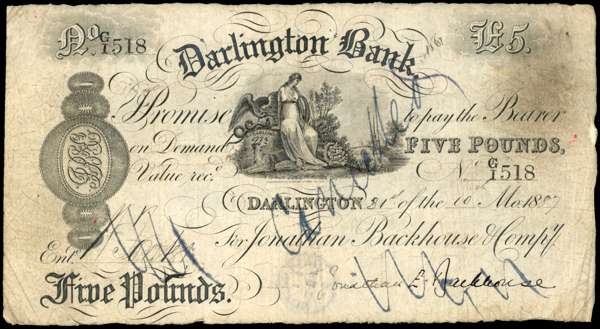 No. G/1518 Darlington Bank. £5.
I Promise to pay the Bearer
on Demand FIVE POUNDS,
Value rec.d No. G/1518
DARLINGTON 21st of the 10 Mo. 1887
For Jonathan Backhouse & Compy.
Ent.d
Five Pounds. Jonathan E. Backhouse
Cancelled